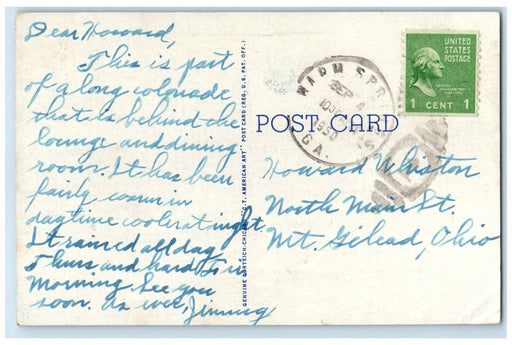 Dear Howard,
This is part
of a long colonade
that is behind the
lounge and dining
room. It has been
fairly warm in
daytime cooler at night.
It rained all day
Thurs and hard Fri
Morning. See you
soon. As ever, Jimmy
GENUINE CURTEICH-CHICAGO "C.T. AMERICAN ART" POST CARD (REG. U.S. PAT. OFF.)
POST CARD
WARM SPR
SEP
1950
GA.
UNITED
STATES
POSTAGE
GEORGE
WASHINGTON
1 CENT 1
Howard Whiston
North Main St.
Mt. Gilead, Ohio